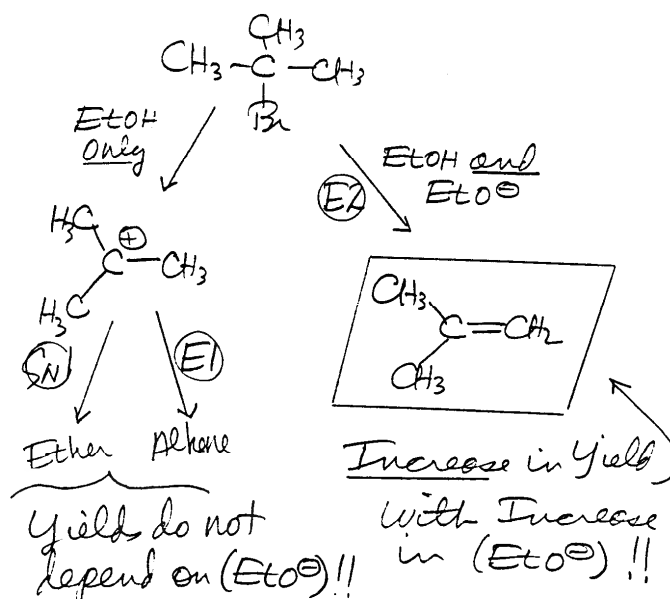 CH₃
CH₃–C–CH₃
Br
EtOH
only
EtOH and
EtO⊖
E2
H₃C
⊕
C–CH₃
H₃C
CH₃
C=CH₂
CH₃
SN1
E1
Ether Alkene
Yields do not
depend on (EtO⊖)!!
Increase in Yield
with Increase
in (EtO⊖)!!